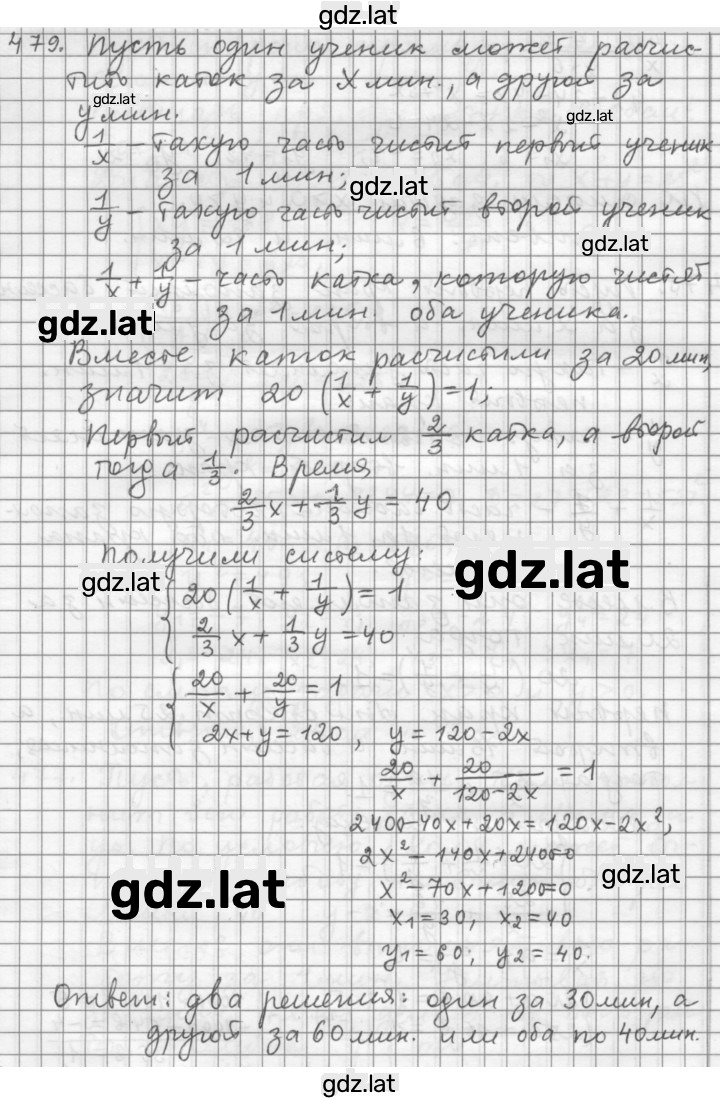 gdz.lat
479. Пусть один ученик может расчис-
тить каток за x мин., а другой за
gdz.lat
y мин.
gdz.lat
1/x – такую часть чистит первый ученик
за 1 мин;
gdz.lat
1/y – такую часть чистит второй ученик
за 1 мин;
gdz.lat
1/x + 1/y – часть катка, которую чистят
за 1 мин. оба ученика.
gdz.lat
Вместе каток расчистили за 20 мин,
значит 20 (1/x + 1/y) = 1;
Первый расчистил 2/3 катка, а второй
тогда 1/3. Время
2/3 x + 1/3 y = 40
Получили систему:
gdz.lat
gdz.lat
{ 20 (1/x + 1/y) = 1
2/3 x + 1/3 y = 40
{ 20/x + 20/y = 1
2x + y = 120, y = 120 - 2x
20/x + 20/(120-2x) = 1
2400 - 40x + 20x = 120x - 2x²,
2x² - 140x + 2400=0
gdz.lat
x² - 70x + 1200=0
gdz.lat
x₁ = 30, x₂ = 40
y₁ = 60; y₂ = 40.
Ответ: два решения: один за 30 мин, а
другой за 60 мин. или оба по 40 мин.
gdz.lat